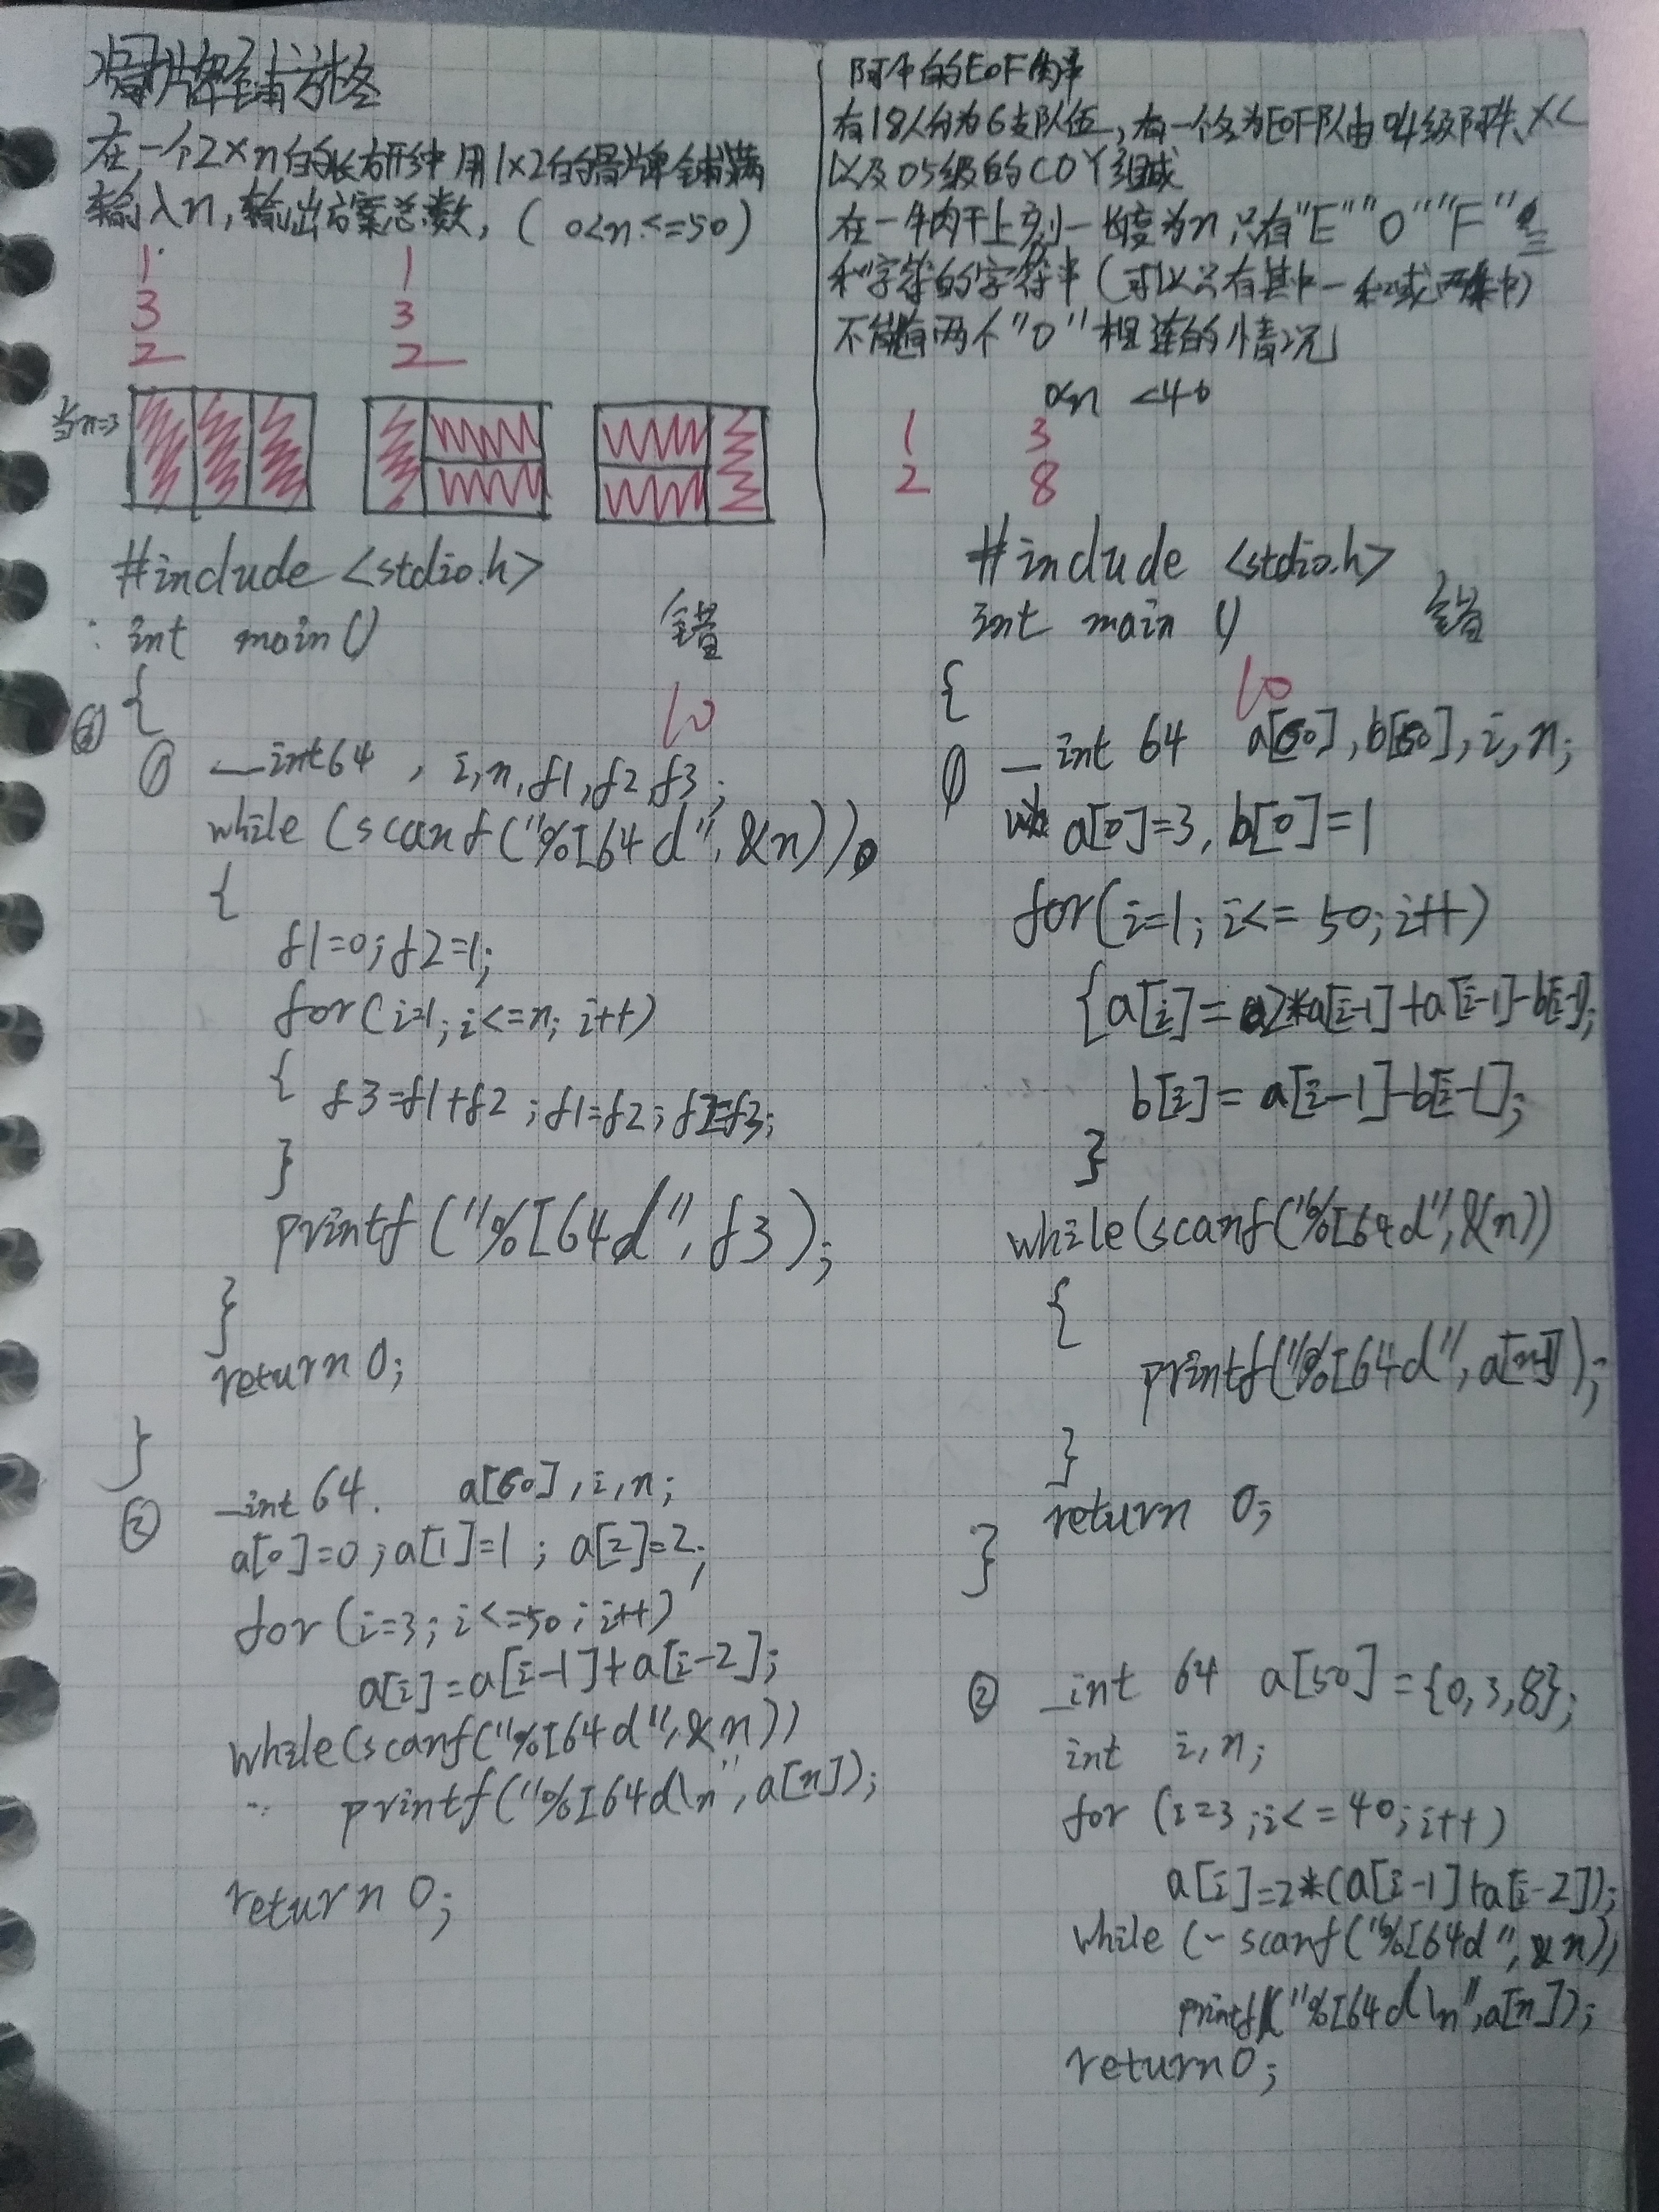 骨牌铺方格
在一个2×n的长方形中用1×2的骨牌铺满
输入n,输出方案总数,( 0<n<=50)
1 1
3 3
2 2
当n=3
#include <stdio.h>
int main()
错
{
10
① __int64 , i,n,f1,f2,f3;
while (scanf("%I64d",&n))
{
f1=0;f2=1;
for(i=1;i<=n;i++)
{ f3=f1+f2;f1=f2;f2=f3;
}
printf("%I64d",f3);
}
return 0;
}
② __int64. a[60],i,n;
a[0]=0;a[1]=1;a[2]=2;
for(i=3;i<=50;i++)
a[i]=a[i-1]+a[i-2];
while(scanf("%I64d",&n))
printf("%I64d\n",a[n]);
return 0;
阿牛的EOF肉串
有18人分为6支队伍,有一个名为EOF队由04级阿牛、XC
以及05级的COY组成
在一牛肉干上刻一长度为n,只有"E""O""F"三
种字符的字符串(可以只有其中一种或两种)
不能有两个"O"相连的情况
0<n <40
1 3
2 8
#include <stdio.h>
int main ()
错
{
10
① __int 64 a[60],b[60],i,n;
a[0]=3,b[0]=1
for(i=1;i<=50;i++)
{a[i]=2*a[i-1]+a[i-1]-b[i-1];
b[i]=a[i-1]-b[i-1];
}
while(scanf("%I64d",&n))
{
printf("%I64d",a[n-1]);
}
return 0;
}
② __int 64 a[50]={0,3,8};
int i,n;
for (i=3;i<=40;i++)
a[i]=2*(a[i-1]+a[i-2]);
while (~scanf("%I64d",&n))
printf("%I64d\n",a[n]);
return 0;